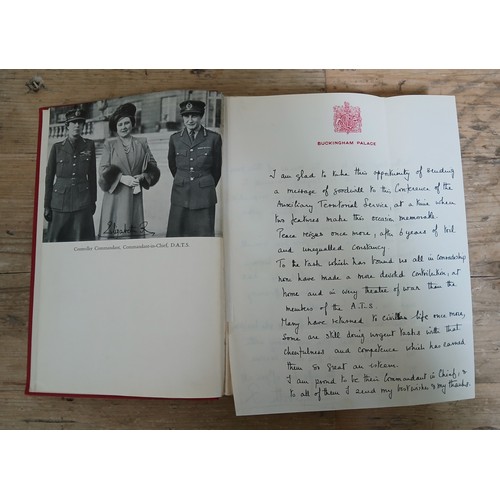 Elizabeth R
Controller Commandant, Commandant-in-Chief, D.A.T.S.
BUCKINGHAM PALACE
I am glad to take this opportunity of sending
a message of goodwill to this Conference of the
Auxiliary Territorial Service, at a time when
two features make this occasion memorable.
Peace reigns once more, after 6 years of toil
and unequalled constancy.
To the task which has bound us all in comradeship
none have made a more devoted contribution, at
home and in every theatre of war than the
members of the A.T.S.
Many have returned to civilian life once more,
some are still doing urgent tasks with that
cheerfulness and competence which has earned
them so great an esteem.
I am proud to be their Commandant in Chief, &
to all of them I send my best wishes & my thanks.